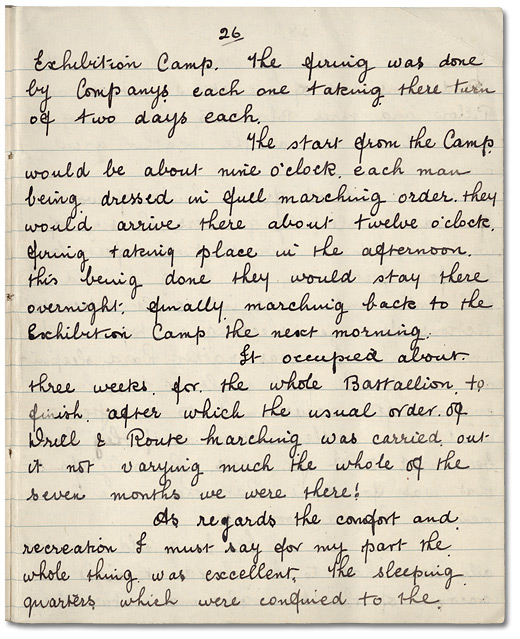 26
Exhibition Camp. The firing was done
by Companys each one taking there turn
of two days each.
The start from the Camp
would be about nine o'clock. each man
being dressed in full marching order. they
would arrive there about twelve o'clock.
firing taking place in the afternoon.
this being done they would stay there
overnight; finally marching back to the
Exhibition Camp the next morning.
It occupied about
three weeks for the whole Battallion to
finish. after which the usual order of
Drill & Route Marching was carried out
it not varying much the whole of the
seven months we were there!
As regards the comfort and
recreation I must say for my part the
whole thing was excellent, the sleeping
quarters which were confined to the